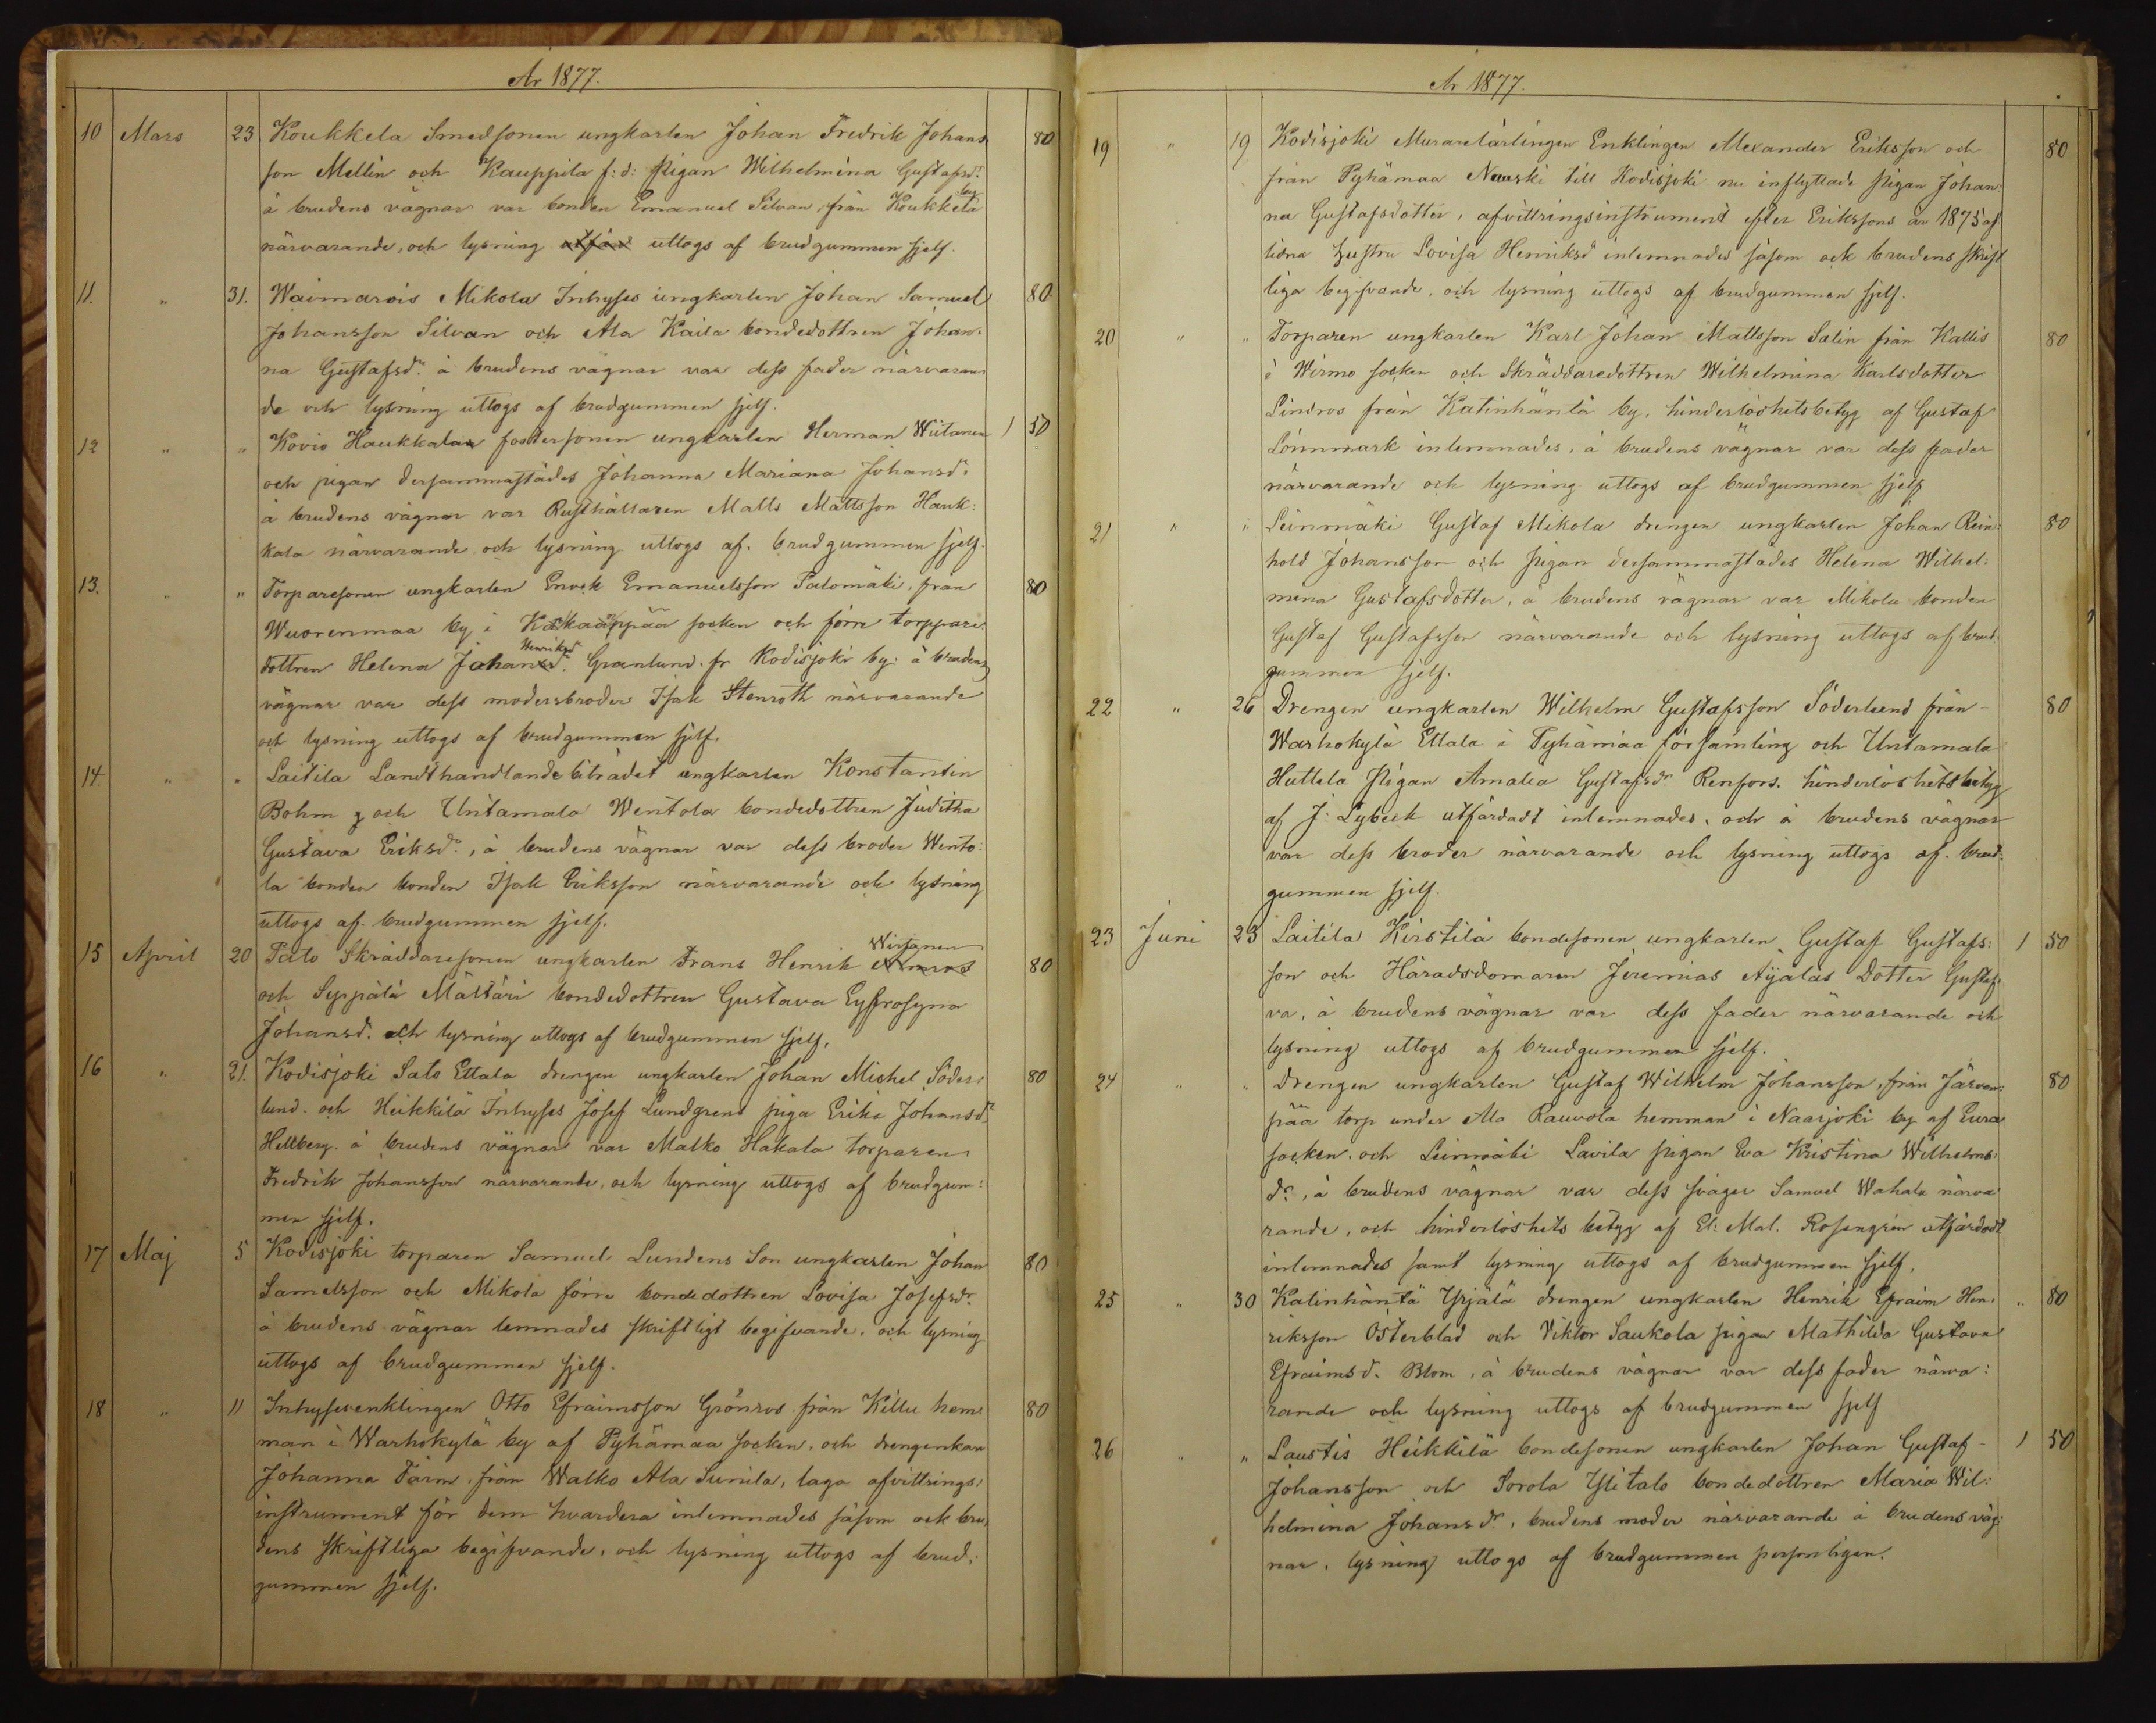 År 1877.
10 Mars 23. Koukkela Smedsonen ungkarlen Johan Fredrik Johans 80
son Mellin och Kauppila f: d: pigan Wilhelmina Gustafsdr.
å brudens vägnar var bonden Emanuel Silvan, från Koukkela by
närvarande, och lysning utfärd uttogs af brudgummen sjelf.
11. " 31. Waimarois Mikola Inhyses ungkarlen Johan Samuel 80
Johansson Silvan och Ala Kaila bondedottren Johan-
na Gustafsdr. å brudens vägnar var dess fader närvaran-
de och lysning uttogs af brudgummen sjelf.
12 " " Kovio Haukkalan fostersonen ungkarlen Herman Wiitanen 1 50
och pigan dersammastädes Johanna Mariana Johansdr.
å brudens vägnar var Rusthållaren Matts Mattsson Hauk:
kala närvarande och lysning uttogs af brudgummen sjelf.
13. " " Torparesonen ungkarlen Enok Emanuelsson Palomäki, från 80
Wuorenmaa by i socken och förre torppare
dottren Helena Johansd. Henriksd. Granlund fr Kodisjoki by: å brudens
vägnar var dess modersbroder Isak Stenroth närvarande
och lysning uttogs af brudgummen sjelf.
14. " " Laitila Landthandlande biträdet ungkarlen Konstantin
Bohm och Untamala Wentola bondedottren Juditha
Gustava Eriksdr., å brudens vägnar var dess broder Wento:
la bonden bonden Isak Eriksson närvarande och lysning
uttogs af brudgummen sjelf.
15 April 20 Palo Skräddaresonen ungkarlen Frans Henrik Wirtanen 80
och Seppälä Mälläri bondedottren Gustava Eyfrosyna
Johansd. och lysning uttogs af brudgummen sjelf.
16 " 21. Kodisjoki Salo Ettala drengen ungkarlen Johan Michel Söder: 80
lund och Heikkilä Inhyses Josef Lundgrens piga Erika Johansdr.
Hellberg. å brudens vägnar var Malko Hakala torparen
Fredrik Johansson närvarande, och lysning uttogs af brudgum:
men sjelf.
17 Maj 5 Kodisjoki torparen Samuel Lundens Son ungkarlen Johan 80
Samelsson och Mikola förre bondedottren Lovisa Josefsdr.
å brudens vägnar lemnades skriftligt begifvande, och lysning
uttogs af brudgummen sjelf.
18 " 11 Inhysesenklingen Otto Efraimsson Grönros från Killu hem: 80
man i Warhokylä by af Pyhämaa socken, och drengenkan
Johanna Färm från Walko Ala Sunila, laga afvittrings:
instrument för dem hvardera inlemnades såsom ock bru:
dens skriftliga begifvande, och lysning uttogs af brud:
gummen sjelf.
År 1877.
19 " 19 Kodisjoki Murarelärlingen Enklingen Alexander Eriksson och 80
från Pyhämaa Nauski till Kodisjoki nu inflyttade pigan Johan:
na Gustafsdotter, afvittringsinstrument efter Erikssons år 1875 af
lidna hustru Lovisa Henriksd inlemnades såsom ock brudens skrift
liga begifvande, och lysning uttogs af brudgummen sjelf.
20 " " Torparen ungkarlen Karl Johan Mattsson Salin från Kallis 80
i Wirmo socken och Skräddaredottren Wilhelmina Karlsdotter
Lindros från Katinhäntä by, hinderlöshetsbetyg af Gustaf
Lönnmark inlemnades, å brudens vägnar var dess fader
närvarande och lysning uttogs af brudgummen sjelf
21 " " Leinmäki Gustaf Mikola drengen ungkarlen Johan Rein: 80
hold Johansson och pigan dersammastädes Helena Wilhel:
mina Gustafsdotter, å brudens vägnar var Mikola bonden
Gustaf Gustafsson närvarande och lysning uttogs af brud:
gummen sjelf.
22 " 26 Drengen ungkarlen Wilhelm Gustafsson Söderlund från 80
Warhokylä Ettala i Pyhämaa församling och Untamala
Huttela pigan Amalia Gustafsdr Renfors. hinderlöshetsbetyg
af J: Lybeck utfärdadt inlemnades, och å brudens vägnar
var dess broder närvarande och lysning uttogs af brud:
gummen sjelf.
23 Juni 23 Laitila Kirstilä bondesonen ungkarlen Gustaf Gustafs: 1 50
son och Häradsdomaren Jeremias Äijäläs Dotter Gusta
va, å brudens vägnar var dess fader närvarande och
lysning uttogs af brudgummen sjelf.
24 " " Drengen ungkarlen Gustaf Wilhelm Johansson, från Järven: 80
pää torp under Ala Rauvola hemman i Naarjoki by af Eura
socken och Leinmäki Lavila pigan Eva Kristina Wilhelms:
dr., å brudens vägnar var dess svåger Samuel Wahala närva
rande, och hinderlöshets betyg af El: Mal. Rosengrén utfärdadt
inlemnades samt lysning uttogs af brudgummen sjelf.
25 " 30 Katinhäntä Yrjälä drengen ungkarlen Henrik Efraim Hen: " 80
riksson Österblad och Viktor Saukola pigan Mathilda Gustava
Efraimsd. Blom, å brudens vägnar var dess fader närva:
rande och lysning uttogs af brudgummen sjelf
26 " " Laustis Heikkilä bondesonen ungkarlen Johan Gustaf 1 50
Johansson och Sorola Ylitalo bondedottren Maria Wil:
helmina Johansdr., brudens moder närvarande å brudens väg:
nar, lysning uttogs af brudgummen personligen.